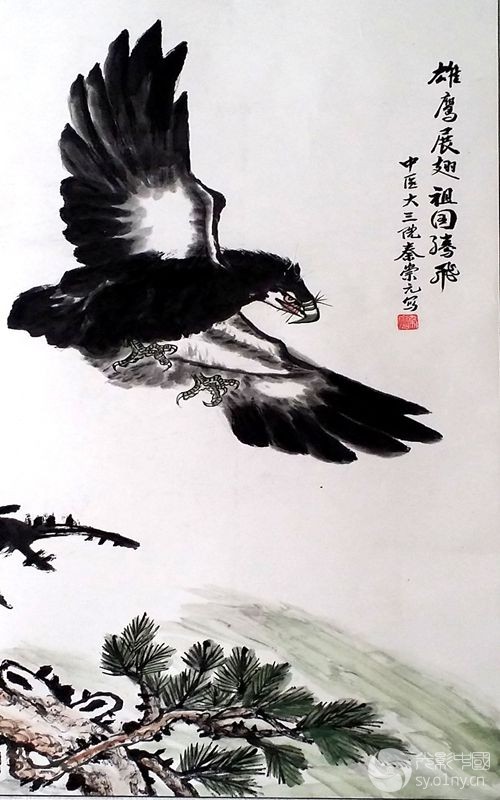 雄鹰展翅祖国腾飞
中医大三院秦崇元写
光影中國
sy.o1ny.cn